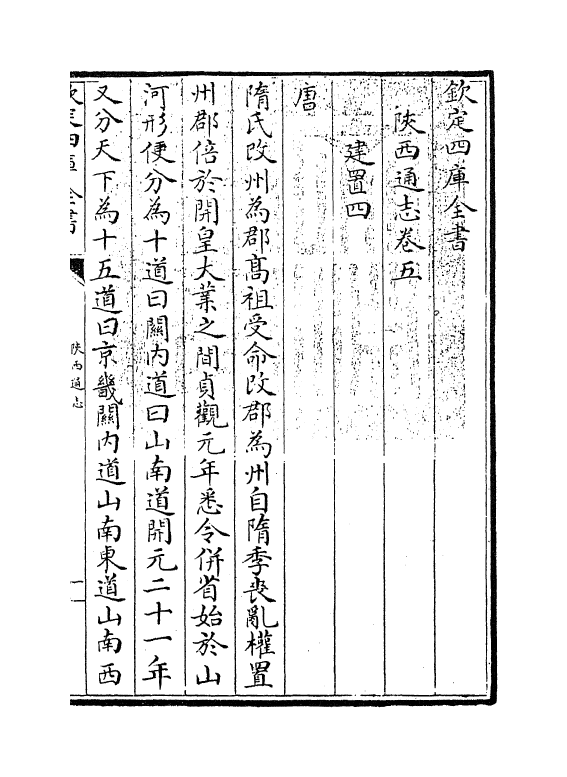 欽定四庫全書
陜西通志卷五
建置四
唐
隋氏改州為郡髙祖受命改郡為州自隋季喪亂權置
州郡倍於開皇大業之間貞觀元年悉令併省始於山
河形便分為十道曰關内道曰山南道開元二十一年
又分天下為十五道曰京畿關内道山南東道山南西
欽定四庫全書
陜西通志
一